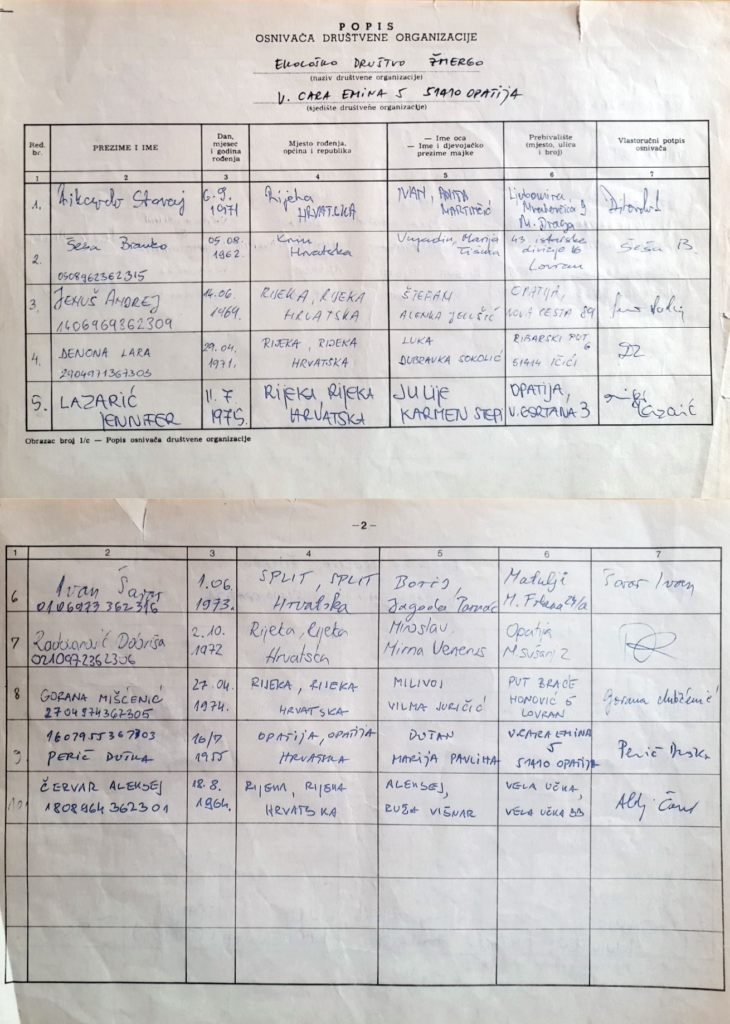 POPIS
OSNIVAČA DRUŠTVENE ORGANIZACIJE
EKOLOŠKO DRUŠTVO ŽMERGO
(naziv društvene organizacije)
V. CARA EMINA 5 51410 OPATIJA
(sjedište društvene organizacije)
Red. br.
PREZIME I IME
Dan, mjesec i godina rođenja
Mjesto rođenja, općina i republika
— Ime oca
— Ime i djevojačko prezime majke
Prebivalište (mjesto, ulica i broj)
Vlastoručni potpis osnivača
1 2 3 4 5 6 7
1.
6.9.
1971
Rijeka
HRVATSKA
IVAN, ANITA
MARTINČIĆ
M. Draga
2.
Šeša Branko
0508962362315
05.08.
1962.
Knin
Hrvatska
Vujadin, Marija
43. istarske
divizije 16
Lovran
Šeša B.
3.
JENUŠ ANDREJ
1406969362309
14.06.
1969.
RIJEKA, RIJEKA
HRVATSKA
ŠTEFAN
ALENKA JELUŠIĆ
OPATIJA,
NOVA CESTA 89
4.
DENONA LARA
2904971367303
29.04.
1971.
RIJEKA, RIJEKA
HRVATSKA
LUKA
DUBRAVKA SOKOLIĆ
RIBARSKI PUT
6
51414 IČIĆI
5.
LAZARIĆ
JENNIFER
11.7.
1975.
RIJEKA, RIJEKA
HRVATSKA
JULIJE
KARMEN STEPI
OPATIJA,
V. GORTANA 3
Obrazac broj 1/c — Popis osnivača društvene organizacije
— 2 —
1 2 3 4 5 6 7
6
Ivan Šarar
0106973362316
1.06.
1973.
SPLIT, SPLIT
Hrvatska
Boris,
Jagoda
Matulji
Šarar Ivan
7
Dobriša
0210972362306
2.10.
1972
Rijeka, Rijeka
Hrvatska
Miroslav,
Mirna Venerus
Opatija
M. Sušanj 2
8
GORANA MIŠĆENIĆ
2704974367305
27.04.
1974.
RIJEKA, RIJEKA
HRVATSKA
MILIVOJ
VILMA JURIČIĆ
PUT BRAĆE
HONOVIĆ 5
LOVRAN
Gorana Mišćenić
9.
1607955367803
PERIĆ DUŠKA
16/7
1955
OPATIJA, OPATIJA
HRVATSKA
DUŠAN
MARIJA PAVLIHA
V. CARA EMINA
5
51410 OPATIJA
Perić Duška
10.
ČERVAR ALEKSEJ
1808964362301
18.8.
1964.
RIJEKA, RIJEKA
HRVATSKA
ALEKSEJ,
RUŽA VIŠNAR
VELA UČKA,
VELA UČKA BB